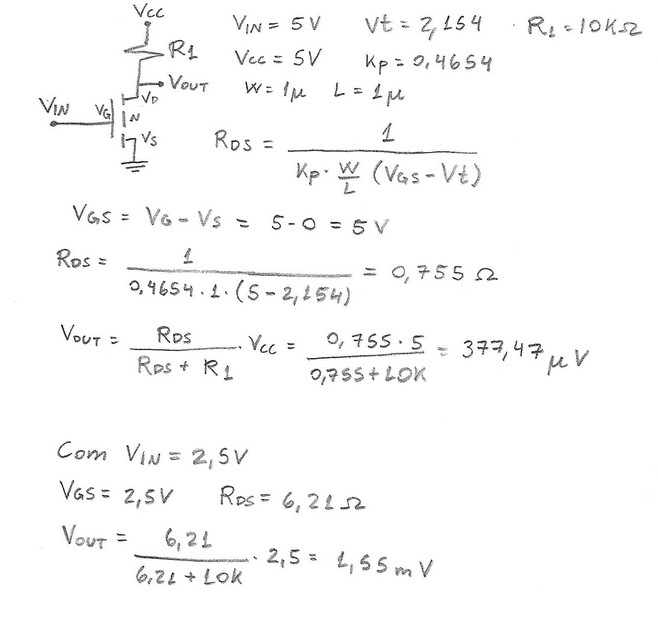 Vcc
R1
VOUT
VD
VIN VG N
VS
VIN = 5V Vt = 2,154 R1 = 10KΩ
Vcc = 5V Kp = 0,4654
W = 1μ L = 1μ
RDS = 1 / (Kp · W/L (VGS - Vt))
VGS = VG - VS = 5 - 0 = 5V
RDS = 1 / (0,4654 · 1 · (5 - 2,154)) = 0,755 Ω
VOUT = RDS / (RDS + R1) · Vcc = 0,755 · 5 / (0,755 + 10K) = 377,47 μV
Com VIN = 2,5V
VGS = 2,5V RDS = 6,21 Ω
VOUT = 6,21 / (6,21 + 10K) · 2,5 = 1,55 mV